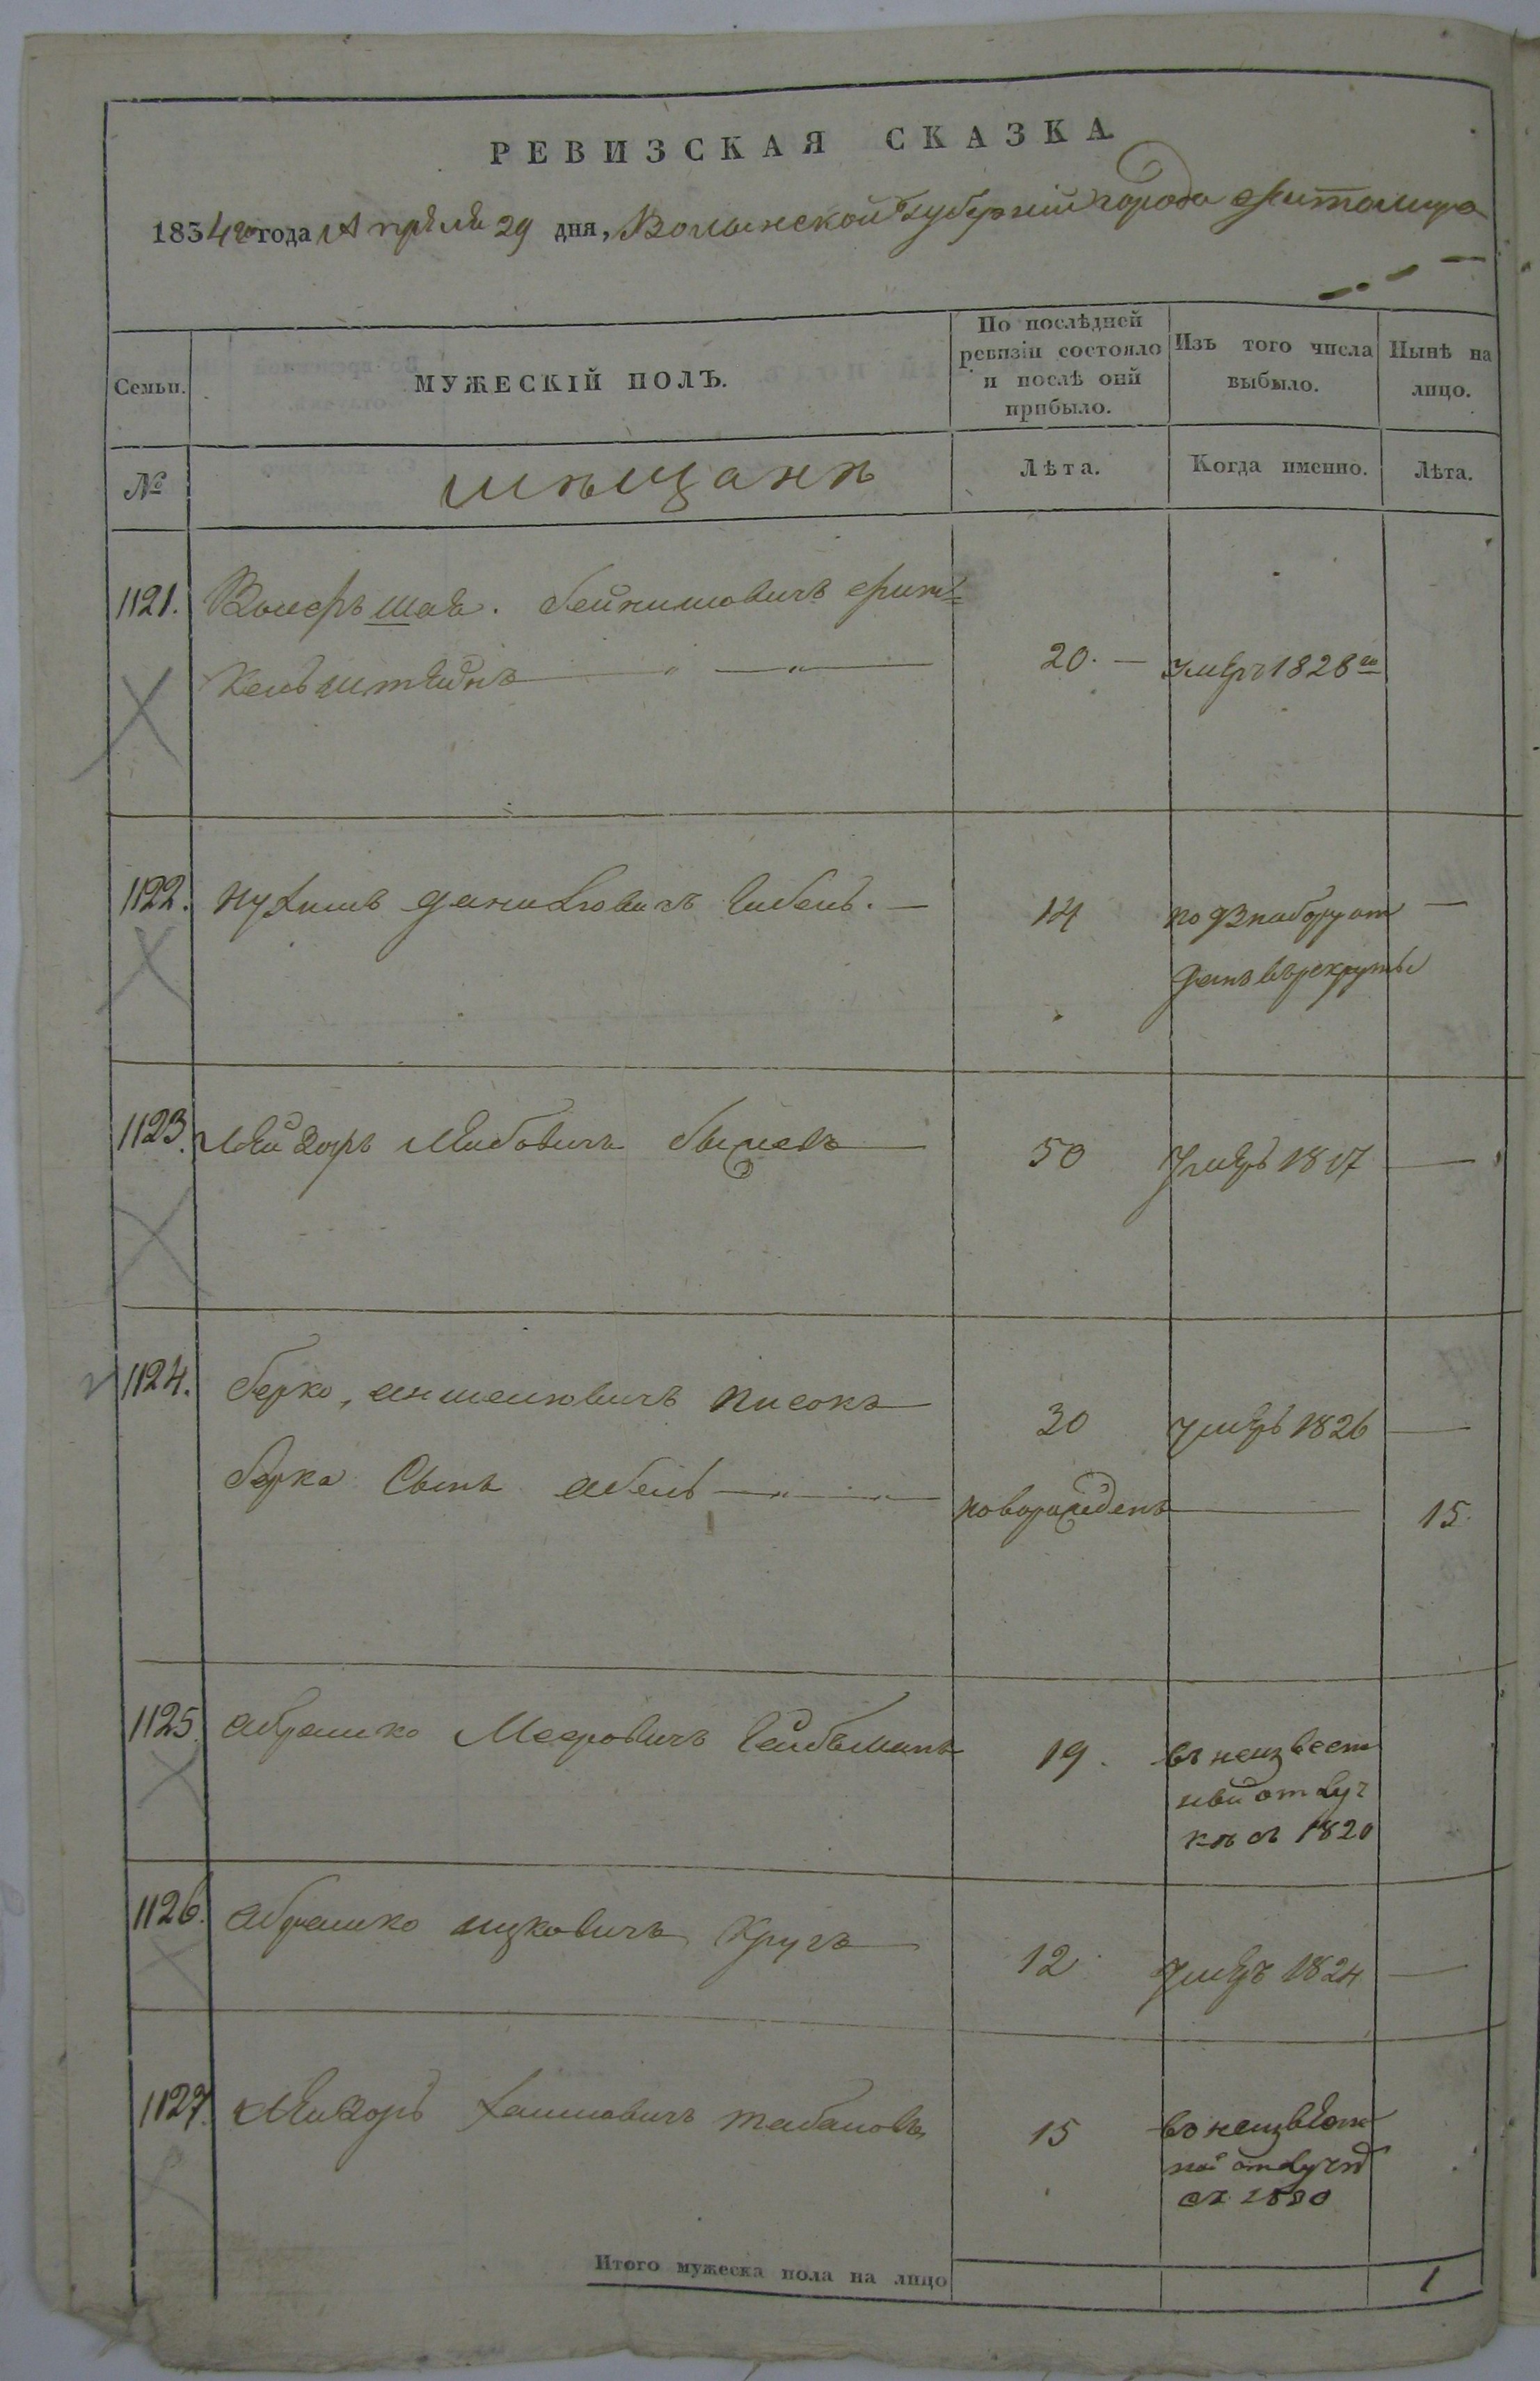 РЕВИЗСКАЯ СКАЗКА
1834го года Апреля 29 дня, Волынской Губернии города Житомира
Семьи.
МУЖЕСКІЙ ПОЛЪ.
По послѣдней ревизіи состояло и послѣ оий прибыло.
Изъ того числа выбыло.
Нынѣ на лицо.
№
мѣщанѣ
Лѣта.
Когда именно.
Лѣта.
1121. Бейнишовичъ
20. — умеръ 1828го
1122. Даниловичъ —
14 по набору от —
данъ въ рекруты
1123. Лейбовичъ
50 Умеръ 1817 —
1124. Берко, Аншелювичъ Писокъ
30 Умеръ 1826 —
Берка Сынъ Абель
новорожденъ 15.
1125. Абрамко Мееровичъ
19. въ неизвест
ной отлуч
кѣ съ 1820
1126. Абрамко Ицковичъ Кругъ
12 Умеръ 1824 —
1127. Хаимовичъ
15 въ неизвест
ной
съ
Итого мужеска пола на лицо 1